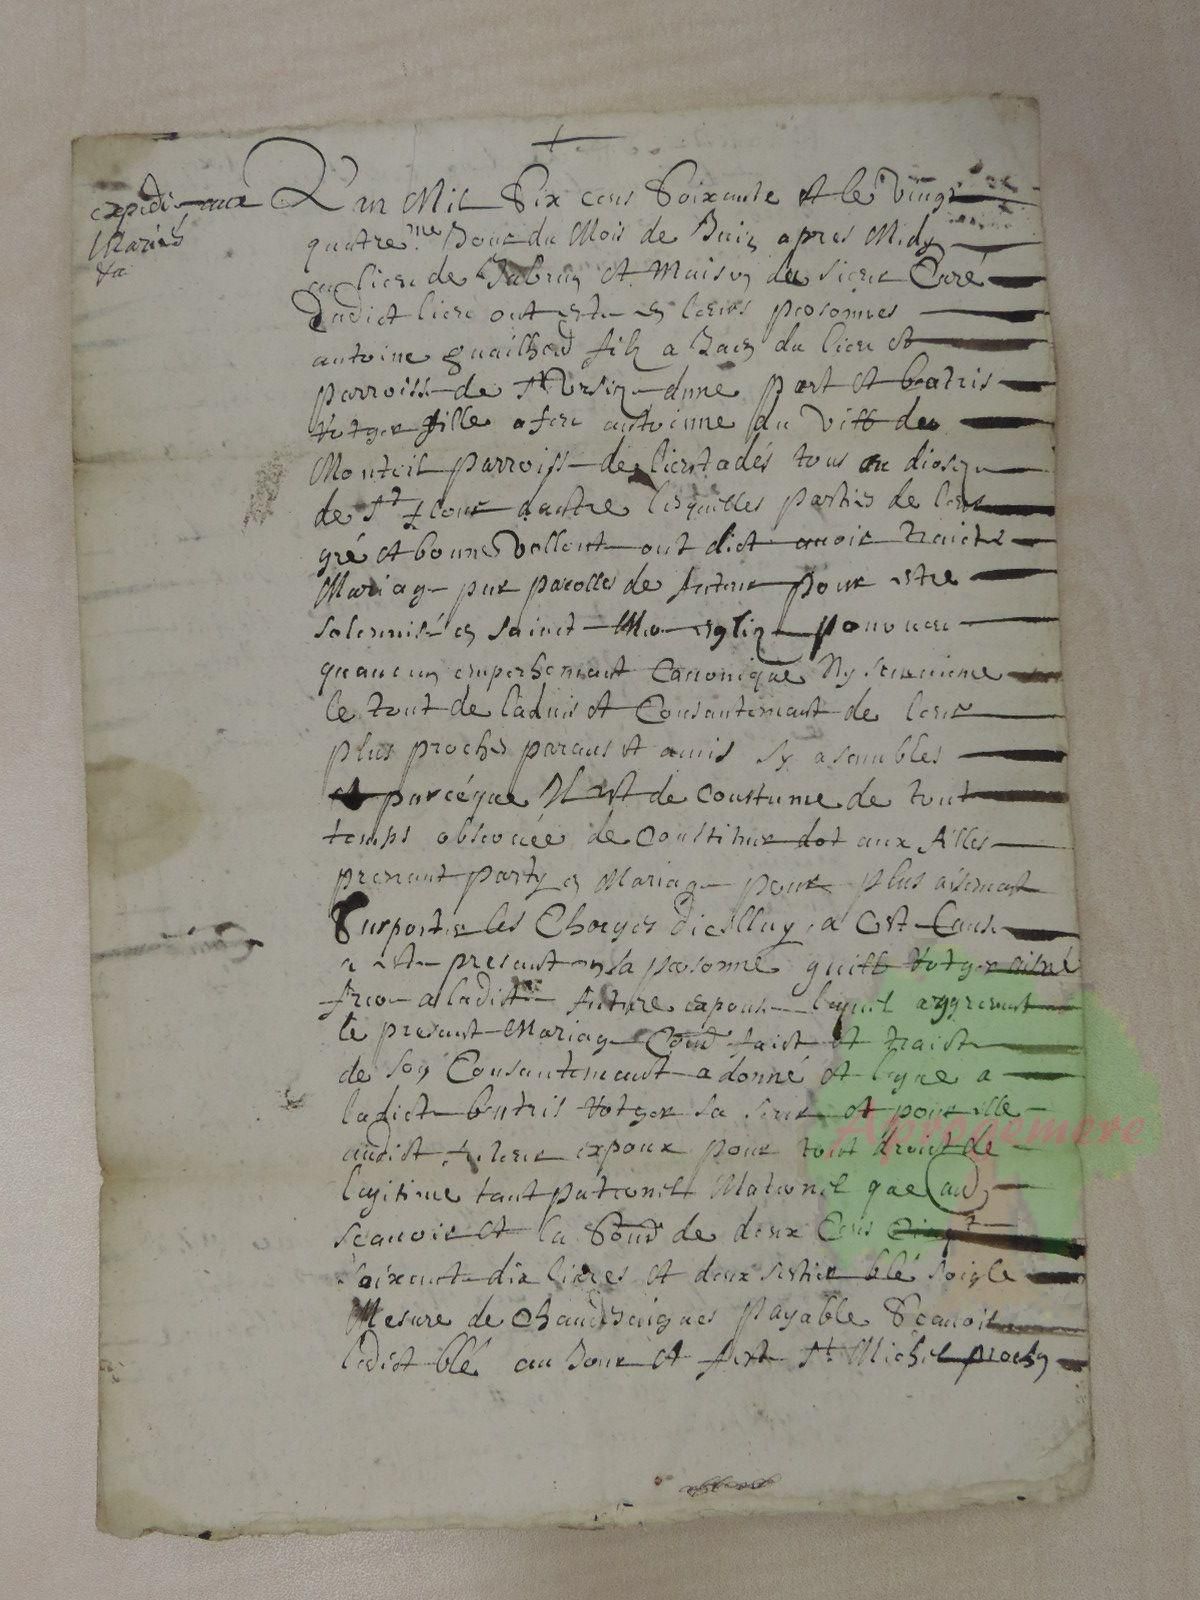 expedié aux
Mariés
L'an Mil Six cens Soixante et le vingt
quatre.me Jour du Mois de Juin apres Midy
au lieu de Jabrun et Maison du sieur Curé
dudict lieu ont esté en leurs personnes
antoine guailhard filz a Jean du lieu et
parroisse de St Ursize dune part et beatris
Votger fille a feu anthoinne du vill de
Monteil parroisse de lieutadés tous au diosese
de St flour dautre lesquelles parties de leur
gré et bonne vollonté ont dict avoir traicté
Mariage par parolles de futeur pour estre
solemnisé en saincte Mere esglize pourveu
quaucun emperhement Canonique Ny seurvienne
le tout de ladvis et Consantemant de leur
plus proches parans et amis sy asambles
et parcéque Il est de coustume de tout
temps observée de constituer dot aux filles
prenant party en Mariage pour plus aisemant
Surporter les Charges dicelluy a Cest Cause
a esté presant en sa personne guill Votger aisné
frere a ladicte future espouse lequel aggreant
le presant Mariage Comme faict et traicté
de son Consantemant a donné et legue a
ladicte beatris Votger sa seur et pour elle
audict futeur expoux pour tout droict de
legitime tant paternel Maternel que
scavoir est la Somme de deux Cens
soixante dix livres et deux sestier blé soigle
Mesure de chaudzaigues payable Scavoir
ledict blé au Jour et feste St Michel prochain